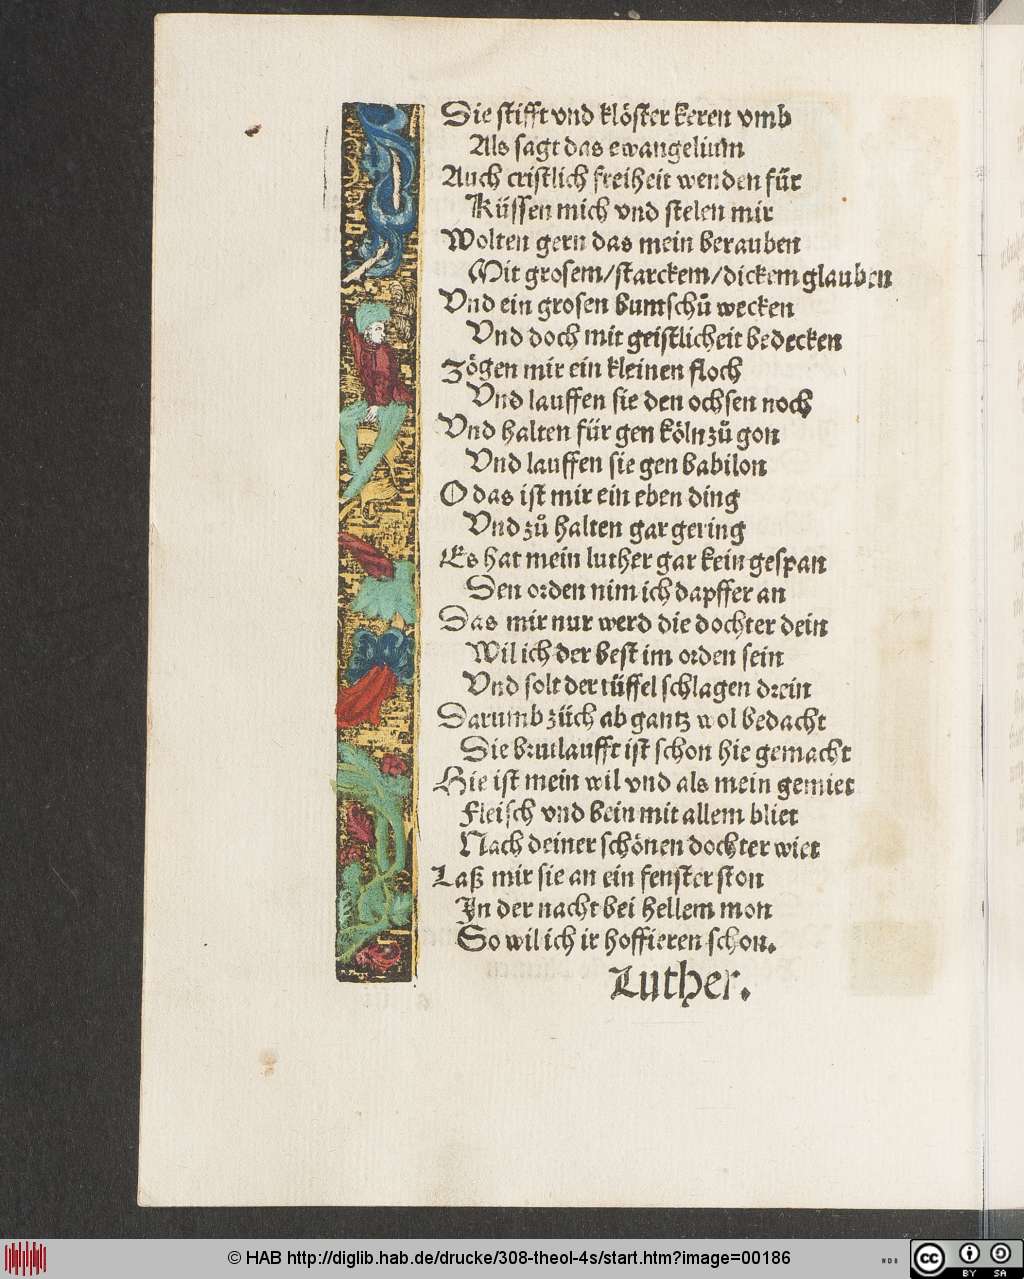 Die stifft vnd klöster keren vmb
Als sagt das ewangelium
Auch cristlich freiheit wenden für
Küssen mich vnd stelen mir
Wolten gern das mein berauben
Mit grosem/starckem/dickem glauben
Vnd ein grosen buntschů wecken
Vnd doch mit geistlicheit bedecken
Zögen mir ein kleinen floch
Vnd lauffen sie den ochsen noch
Vnd halten für gen köln zů gon
Vnd lauffen sie gen babilon
O das ist mir ein eben ding
Vnd zů halten gar gering
Es hat mein luther gar kein gespan
Den orden nim ich dapffer an
Das mir nur werd die dochter dein
Wil ich der best im orden sein
Vnd solt der tüffel schlagen drein
Darumb züch ab gantz wol bedacht
Die brutlaufft ist schon hie gemacht
Hie ist mein wil vnd als mein gemiet
Fleisch vnd bein mit allem bliet
Nach deiner schönen dochter wiet
Laß mir sie an ein fenster ston
In der nacht bei hellem mon
So wil ich ir hoffieren schon.
Luther.
© HAB http://diglib.hab.de/drucke/308-theol-4s/start.htm?image=00186
WDB
cc BY SA